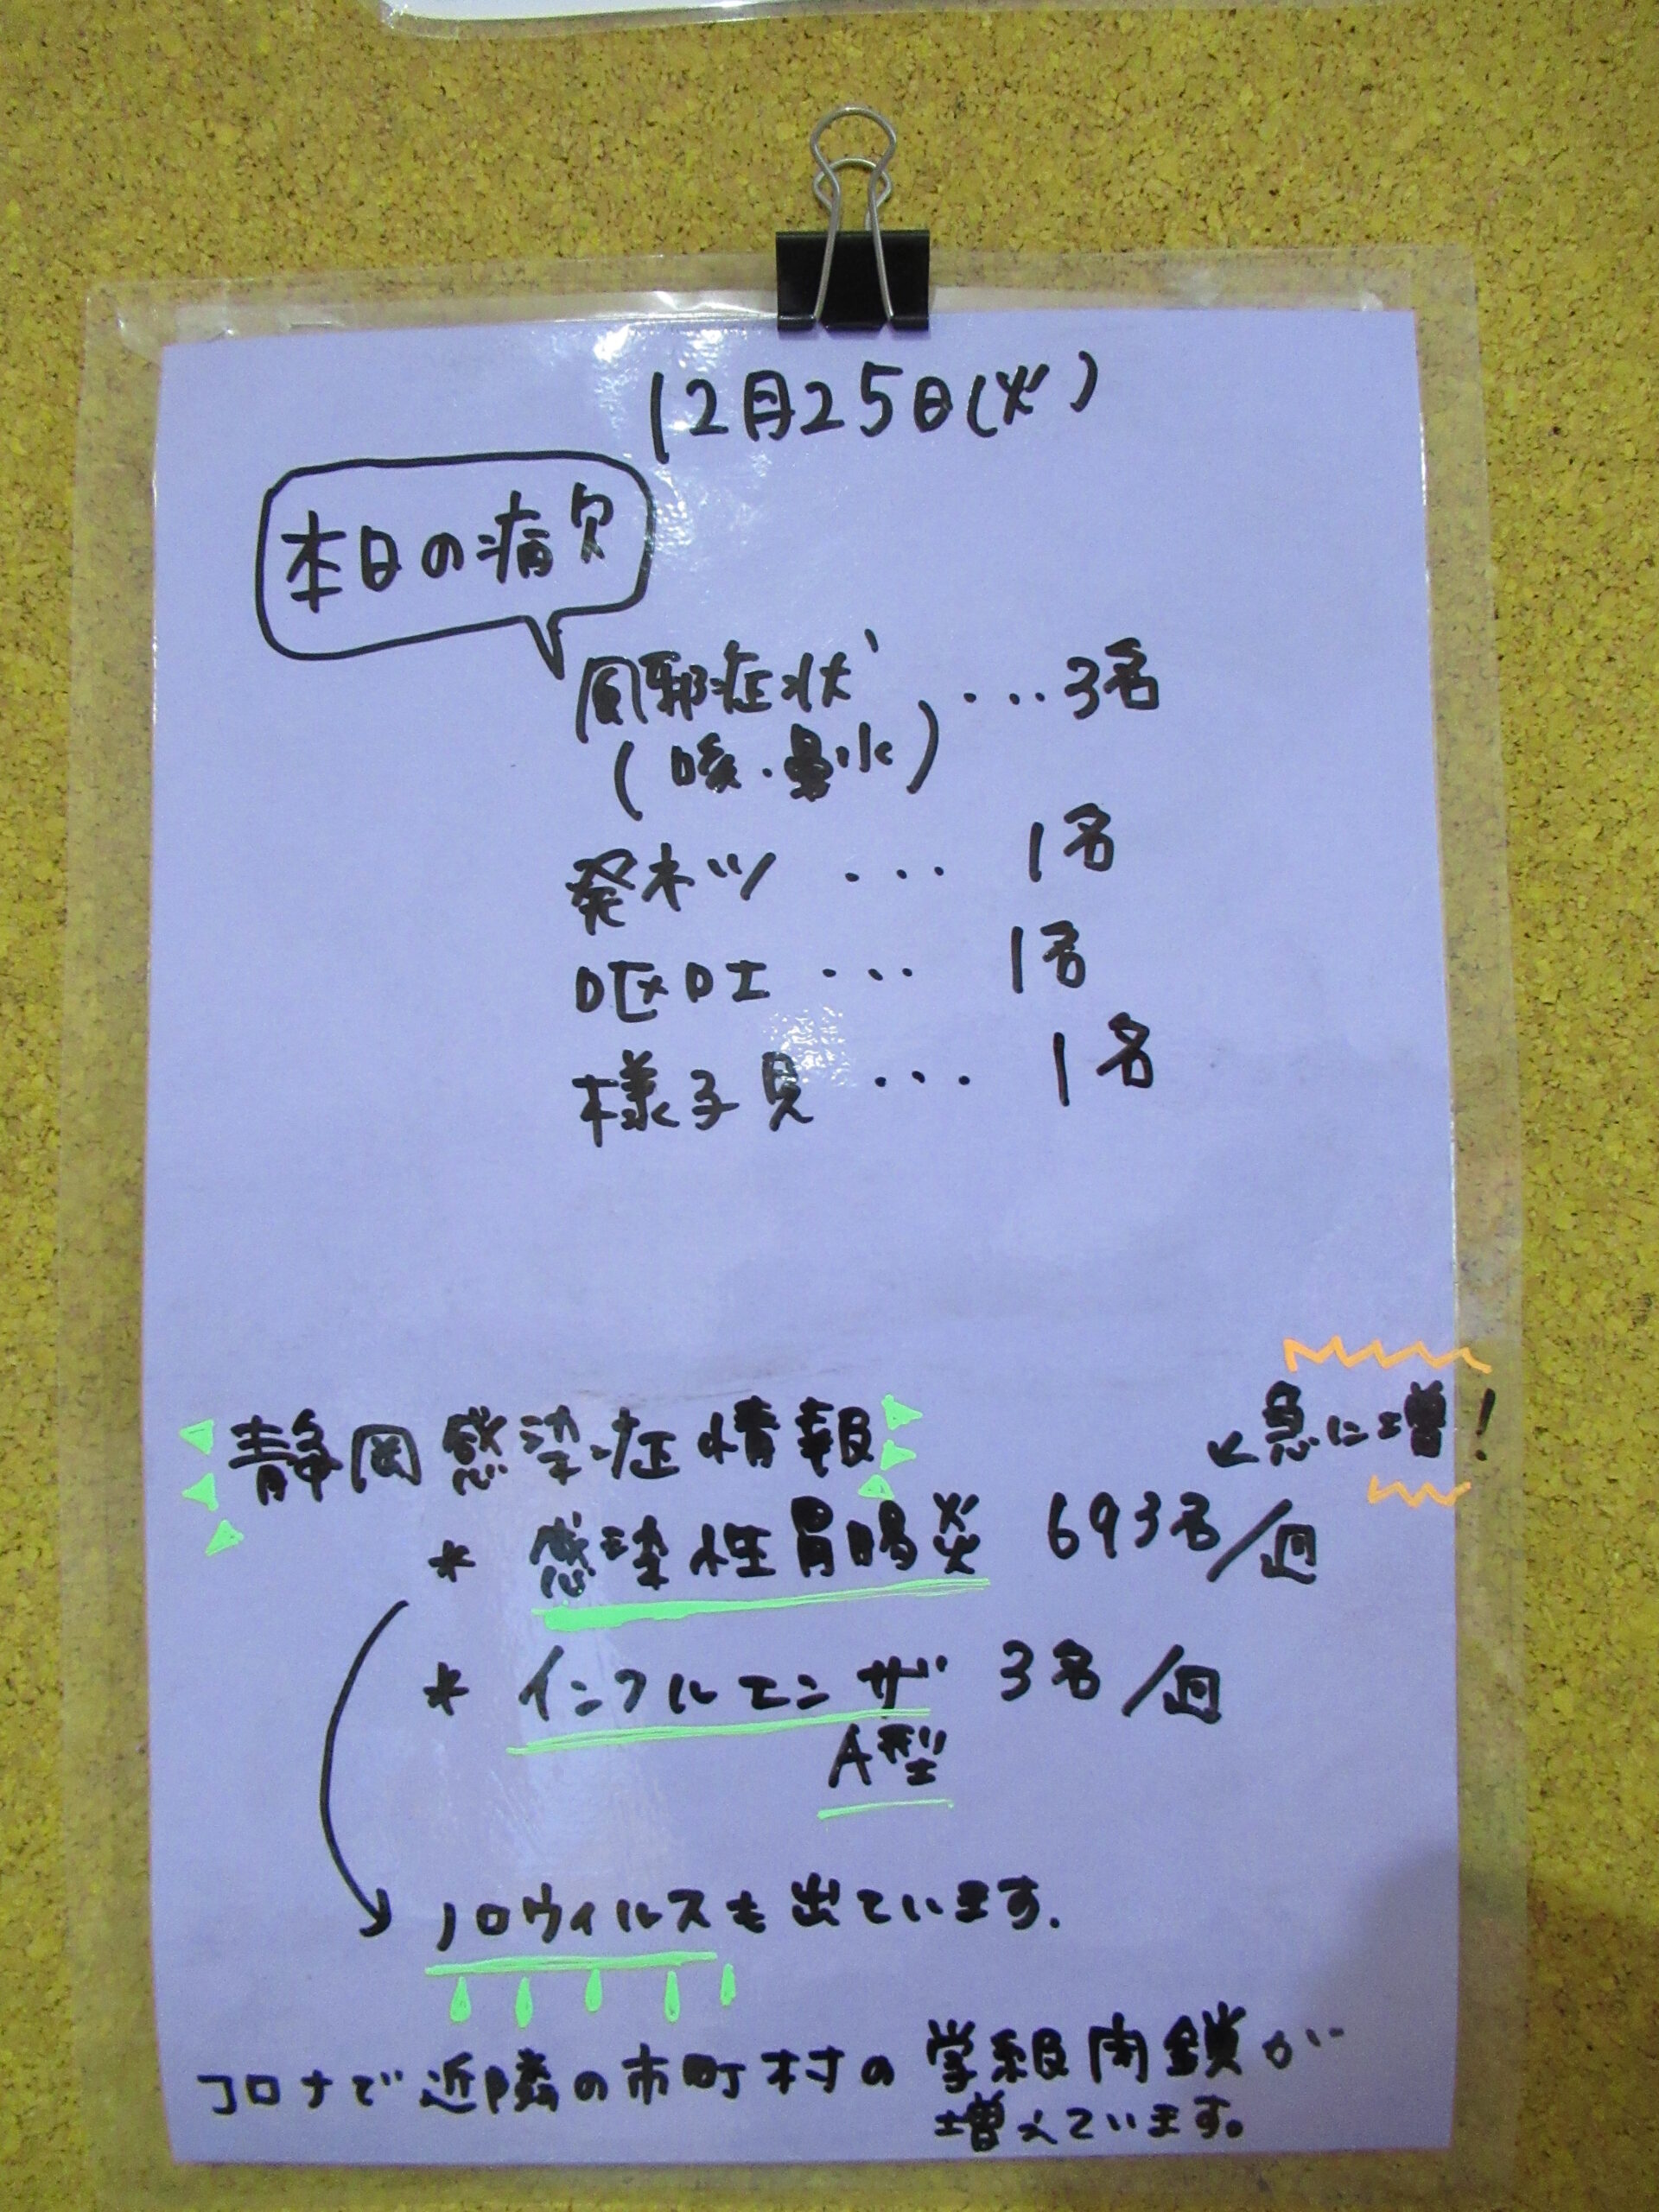 12月25日(火)
本日の病欠
風邪症状 ...3名
(咳・鼻水)
発ホツ ... 1名
嘔吐 ... 1名
様子見 ... 1名
静岡感染症情報
↙急に増!
* 感染性胃腸炎 693名/週
* インフルエンザ 3名/週
A型
ノロウィルスも出ています.
コロナで近隣の市町村の学級閉鎖が
増えています。